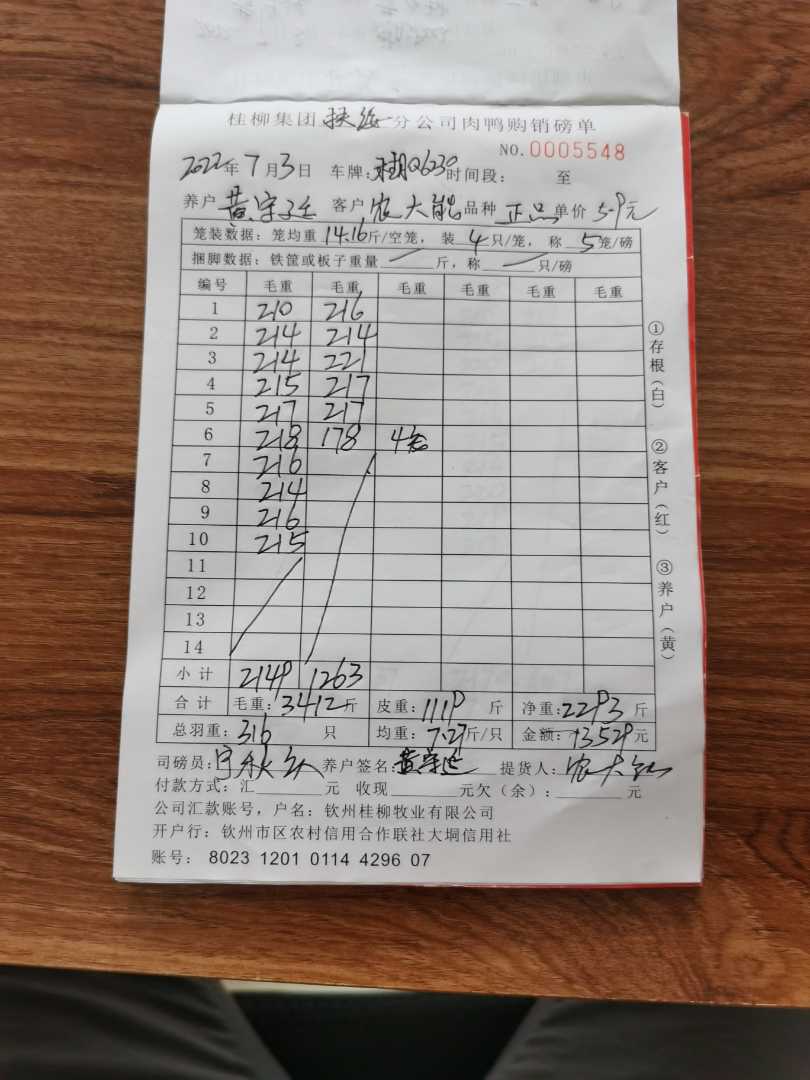 桂柳集团扶绥分公司肉鸭购销磅单
NO.0005548
2022年7月3日 车牌:桂Q6230 时间段: 至
养户 黄宗延 客户 农大能 品种 正品 单价 5.9元
笼装数据:笼均重 14.16斤/空笼, 装 4只/笼, 称 5笼/磅
捆脚数据:铁筐或板子重量 斤,称 只/磅
编号 毛重 毛重 毛重 毛重 毛重 毛重
1 210 216
2 214 214
3 214 221
4 215 217
5 217 217
6 218 178 4笼
7 216
8 214
9 216
10 215
11
12
13
14
小计 2149 1263
合计 毛重:3412斤 皮重:1119 斤 净重:2293 斤
总羽重:316 只 均重:7.27斤/只 金额:13529元
司磅员: 养户签名:黄宗延 提货人:农大能
付款方式:汇 元 收现 元欠(余): 元
公司汇款账号,户名:钦州桂柳牧业有限公司
开户行:钦州市区农村信用合作联社大垌信用社
账号: 8023 1201 0114 4296 07
①存根(白) ②客户(红) ③养户(黄)